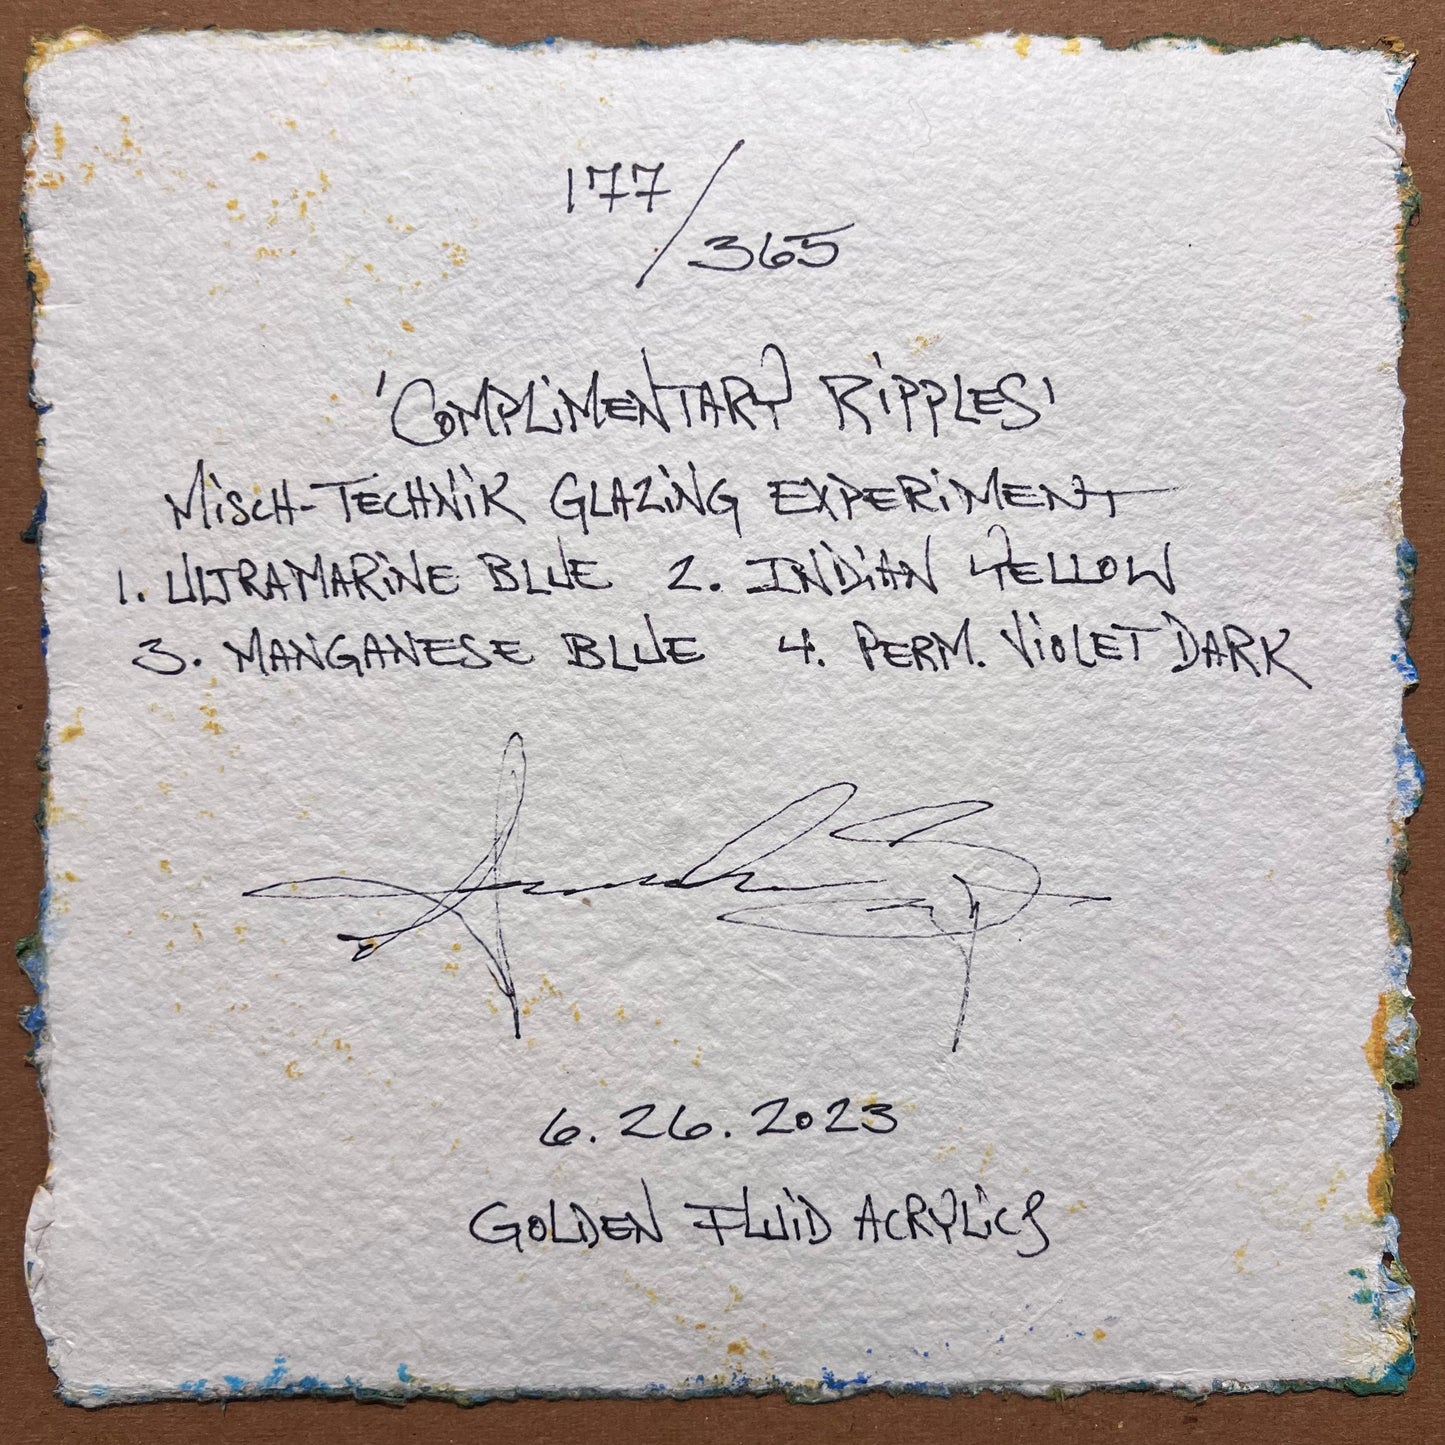 177/365
'COMPLIMENTARY RIPPLES'
MISCH-TECHNIK GLAZING EXPERIMENT
1. ULTRAMARINE BLUE 2. INDIAN YELLOW
3. MANGANESE BLUE 4. PERM. VIOLET DARK
6.26.2023
GOLDEN FLUID ACRYLICS